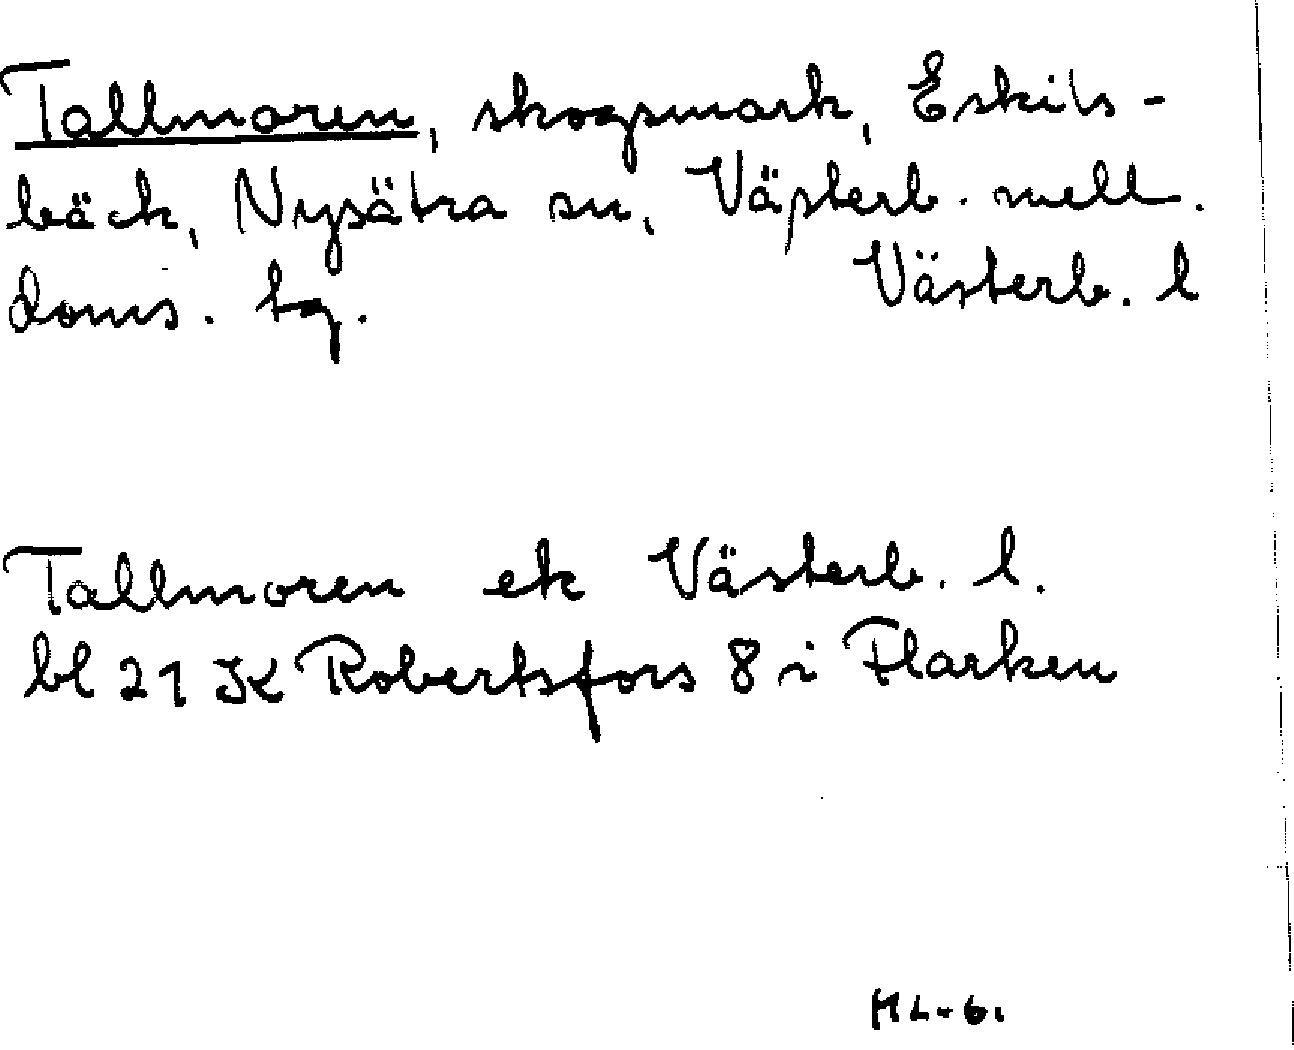 Tallmoren, skogsmark, Eskils-
bäck, Nysätra sn, Västerb. mell.
doms. tg. Västerb. l
Tallmoren ek Västerb. l.
bl 21 K Robertsfors 8 i Flarken